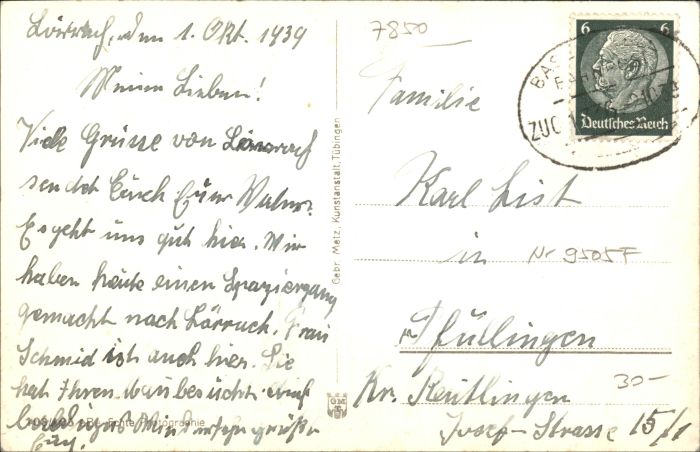 Lörrach, den 1. Okt. 1939
Meine Lieben!
Viele Grüsse von Lörrach
sendet Euch Euer
Es geht uns gut hier. Wir
haben heute einen Spaziergang
gemacht nach Lörrach. Frau
Schmid ist auch hier. Sie
hat Ihren besucht. Auf
Wiedersehn grüßt
Echte Photographie
Gebr. Metz, Kunstanstalt, Tübingen
7850
6 6
Deutsches Reich
BAS
ZUG
Familie
Karl List
in
Nr 9505F
Pfullingen
30-
Kr. Reutlingen
Josef-Strasse 15/1